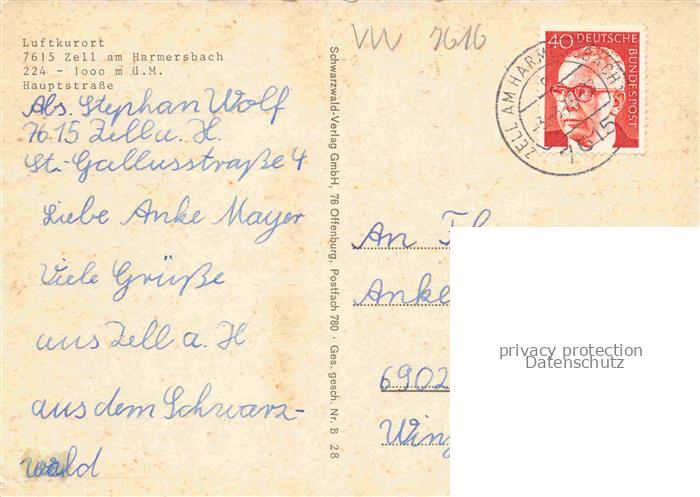 Luftkurort
7615 Zell am Harmersbach
224 - 1000 m ü.M.
Hauptstraße
Abs. Stephan Wolf
7615 Zell a. H.
St.-Gallusstraße 4
Liebe Anke Mayer
Viele Grüße
aus Zell a. H
aus dem Schwarz-
wald
Schwarzwald-Verlag GmbH, 76 Offenburg, Postfach 780 · Ges. gesch. Nr. B 28
7616
40 DEUTSCHE BUNDESPOST
ZELL AM HARMERSBACH
7615
An
Anke
6902
privacy protection
Datenschutz